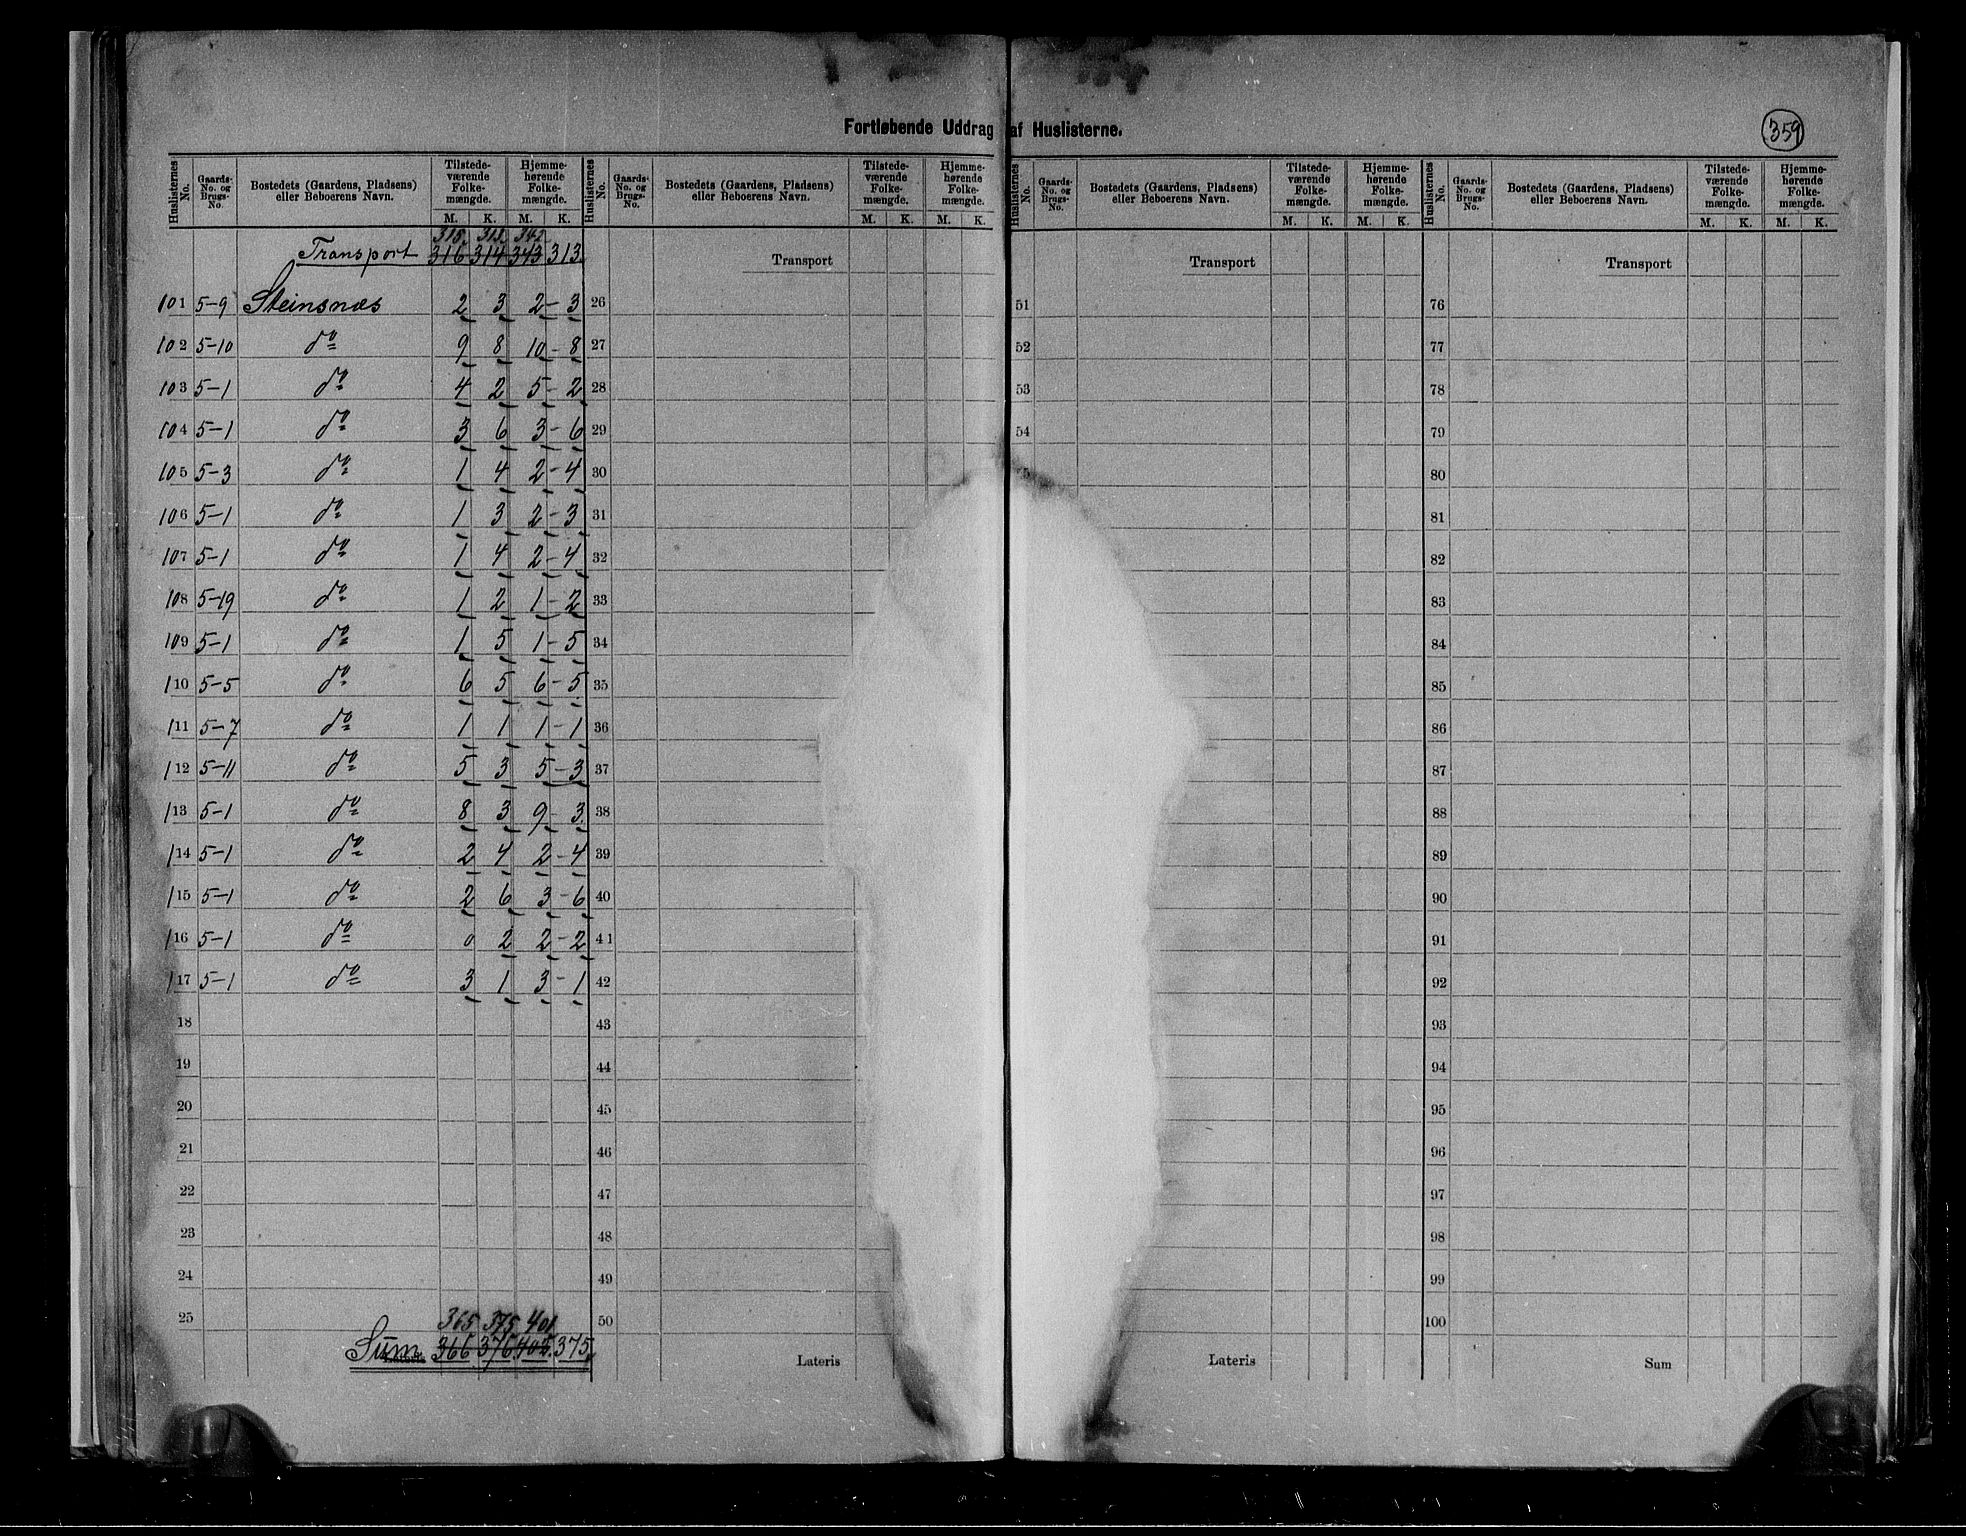 Fortløbende Uddrag af Huslisterne.
359
Huslisternes No. | Gaards-No. og Brugs-No. | Bostedets (Gaardens, Pladsens) eller Beboerens Navn. | Tilstedeværende Folkemængde. M. K. | Hjemmehørende Folkemængde. M. K.
315. 313. 342
Transport 316 314 343 313.
101 5-9 Steinsnæs 2 3 2-3
102 5-10 do 9 8 10-8
103 5-1 do 4 2 5-2
104 5-1 do 3 6 3-6
105 5-3 do 1 4 2-4
106 5-1 do 1 3 2-3
107 5-1 do 1 4 2-4
108 5-19 do 1 2 1-2
109 5-1 do 1 5 1-5
110 5-5 do 6 5 6-5
111 5-7 do 1 1 1-1
112 5-11 do 5 3 5-3
113 5-1 do 8 3 9-3.
114 5-1 do 2 4 2-4
115 5-1 do 2 6 3-6
116 5-1 do 0 2 2-2
117 5-1 do 3 1 3-1
18
19
20
21
22
23
24
25
365 375 401
Sum 366 376 402. 375.
Huslisternes No. | Gaards-No. og Brugs-No. | Bostedets (Gaardens, Pladsens) eller Beboerens Navn. | Tilstedeværende Folkemængde. M. K. | Hjemmehørende Folkemængde. M. K.
Transport
26
27
28
29
30
31
32
33
34
35
36
37
38
39
40
41
42
43
44
45
46
47
48
49
50
Lateris
Huslisternes No. | Gaards-No. og Brugs-No. | Bostedets (Gaardens, Pladsens) eller Beboerens Navn. | Tilstedeværende Folkemængde. M. K. | Hjemmehørende Folkemængde. M. K.
Transport
51
52
53
54
Lateris
Huslisternes No. | Gaards-No. og Brugs-No. | Bostedets (Gaardens, Pladsens) eller Beboerens Navn. | Tilstedeværende Folkemængde. M. K. | Hjemmehørende Folkemængde. M. K.
Transport
76
77
78
79
80
81
82
83
84
85
86
87
88
89
90
91
92
93
94
95
96
97
98
99
100
Sum